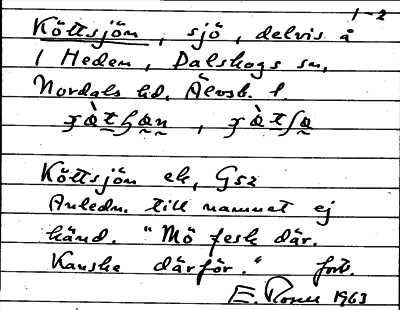 1-2
Köttsjön, sjö, delvis å
1 Heden, Dalskogs sn,
Nordals hd, Älvsb. l.
Köttsjön ek, Gsz
Anledn. till namnet ej
känd. "Mö fesk där.
Kanske därför." fort.
E. 1963